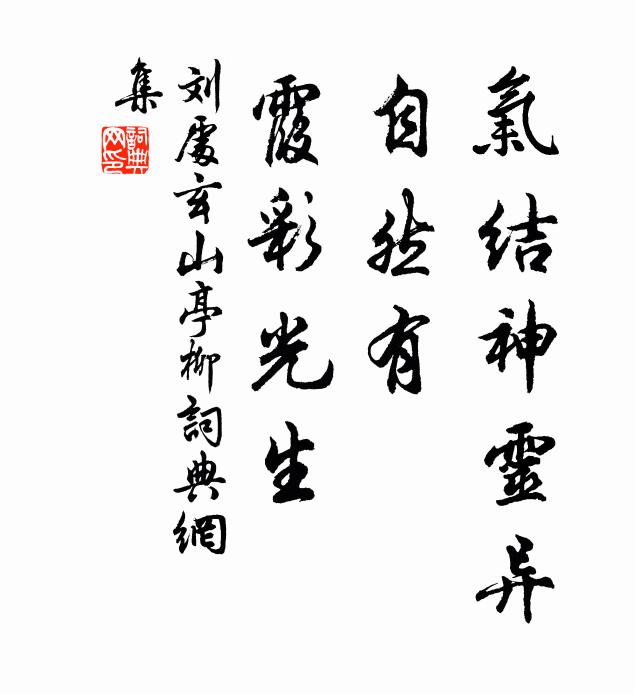 氣结神靈异
自然有
霞彩光生
刘處玄山亭柳詞典網
集
詞典网印